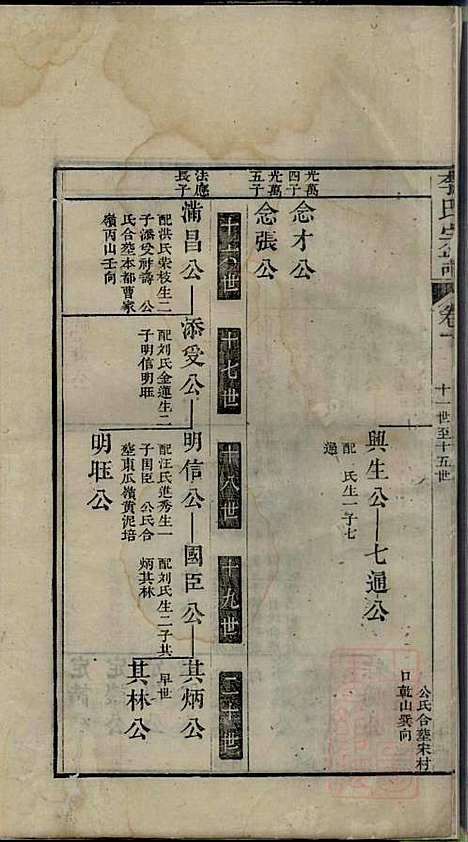 李氏宗譜
卷一
十一世至十五世
公氏合塟宋村
口乾山巽向
興生公
七通公
配 氏生一子七
通
光萬
四子
念才公
光萬
五子
念張公
十六世
十七世
十八世
十九世
二十世
法應
長子
滿昌公
配洪氏柴枝生二
子添受祔壽 公
氏合塟本都曹家
嶺丙山壬向
添受公
配刘氏金蓮生二
子明信明旺
明信公
配汪氏逆秀生一
子国臣 公氏合
塟東瓜嶺黄泥培
國臣公
配刘氏生二子其
炳其林
其炳公
早世
明旺公
其林公